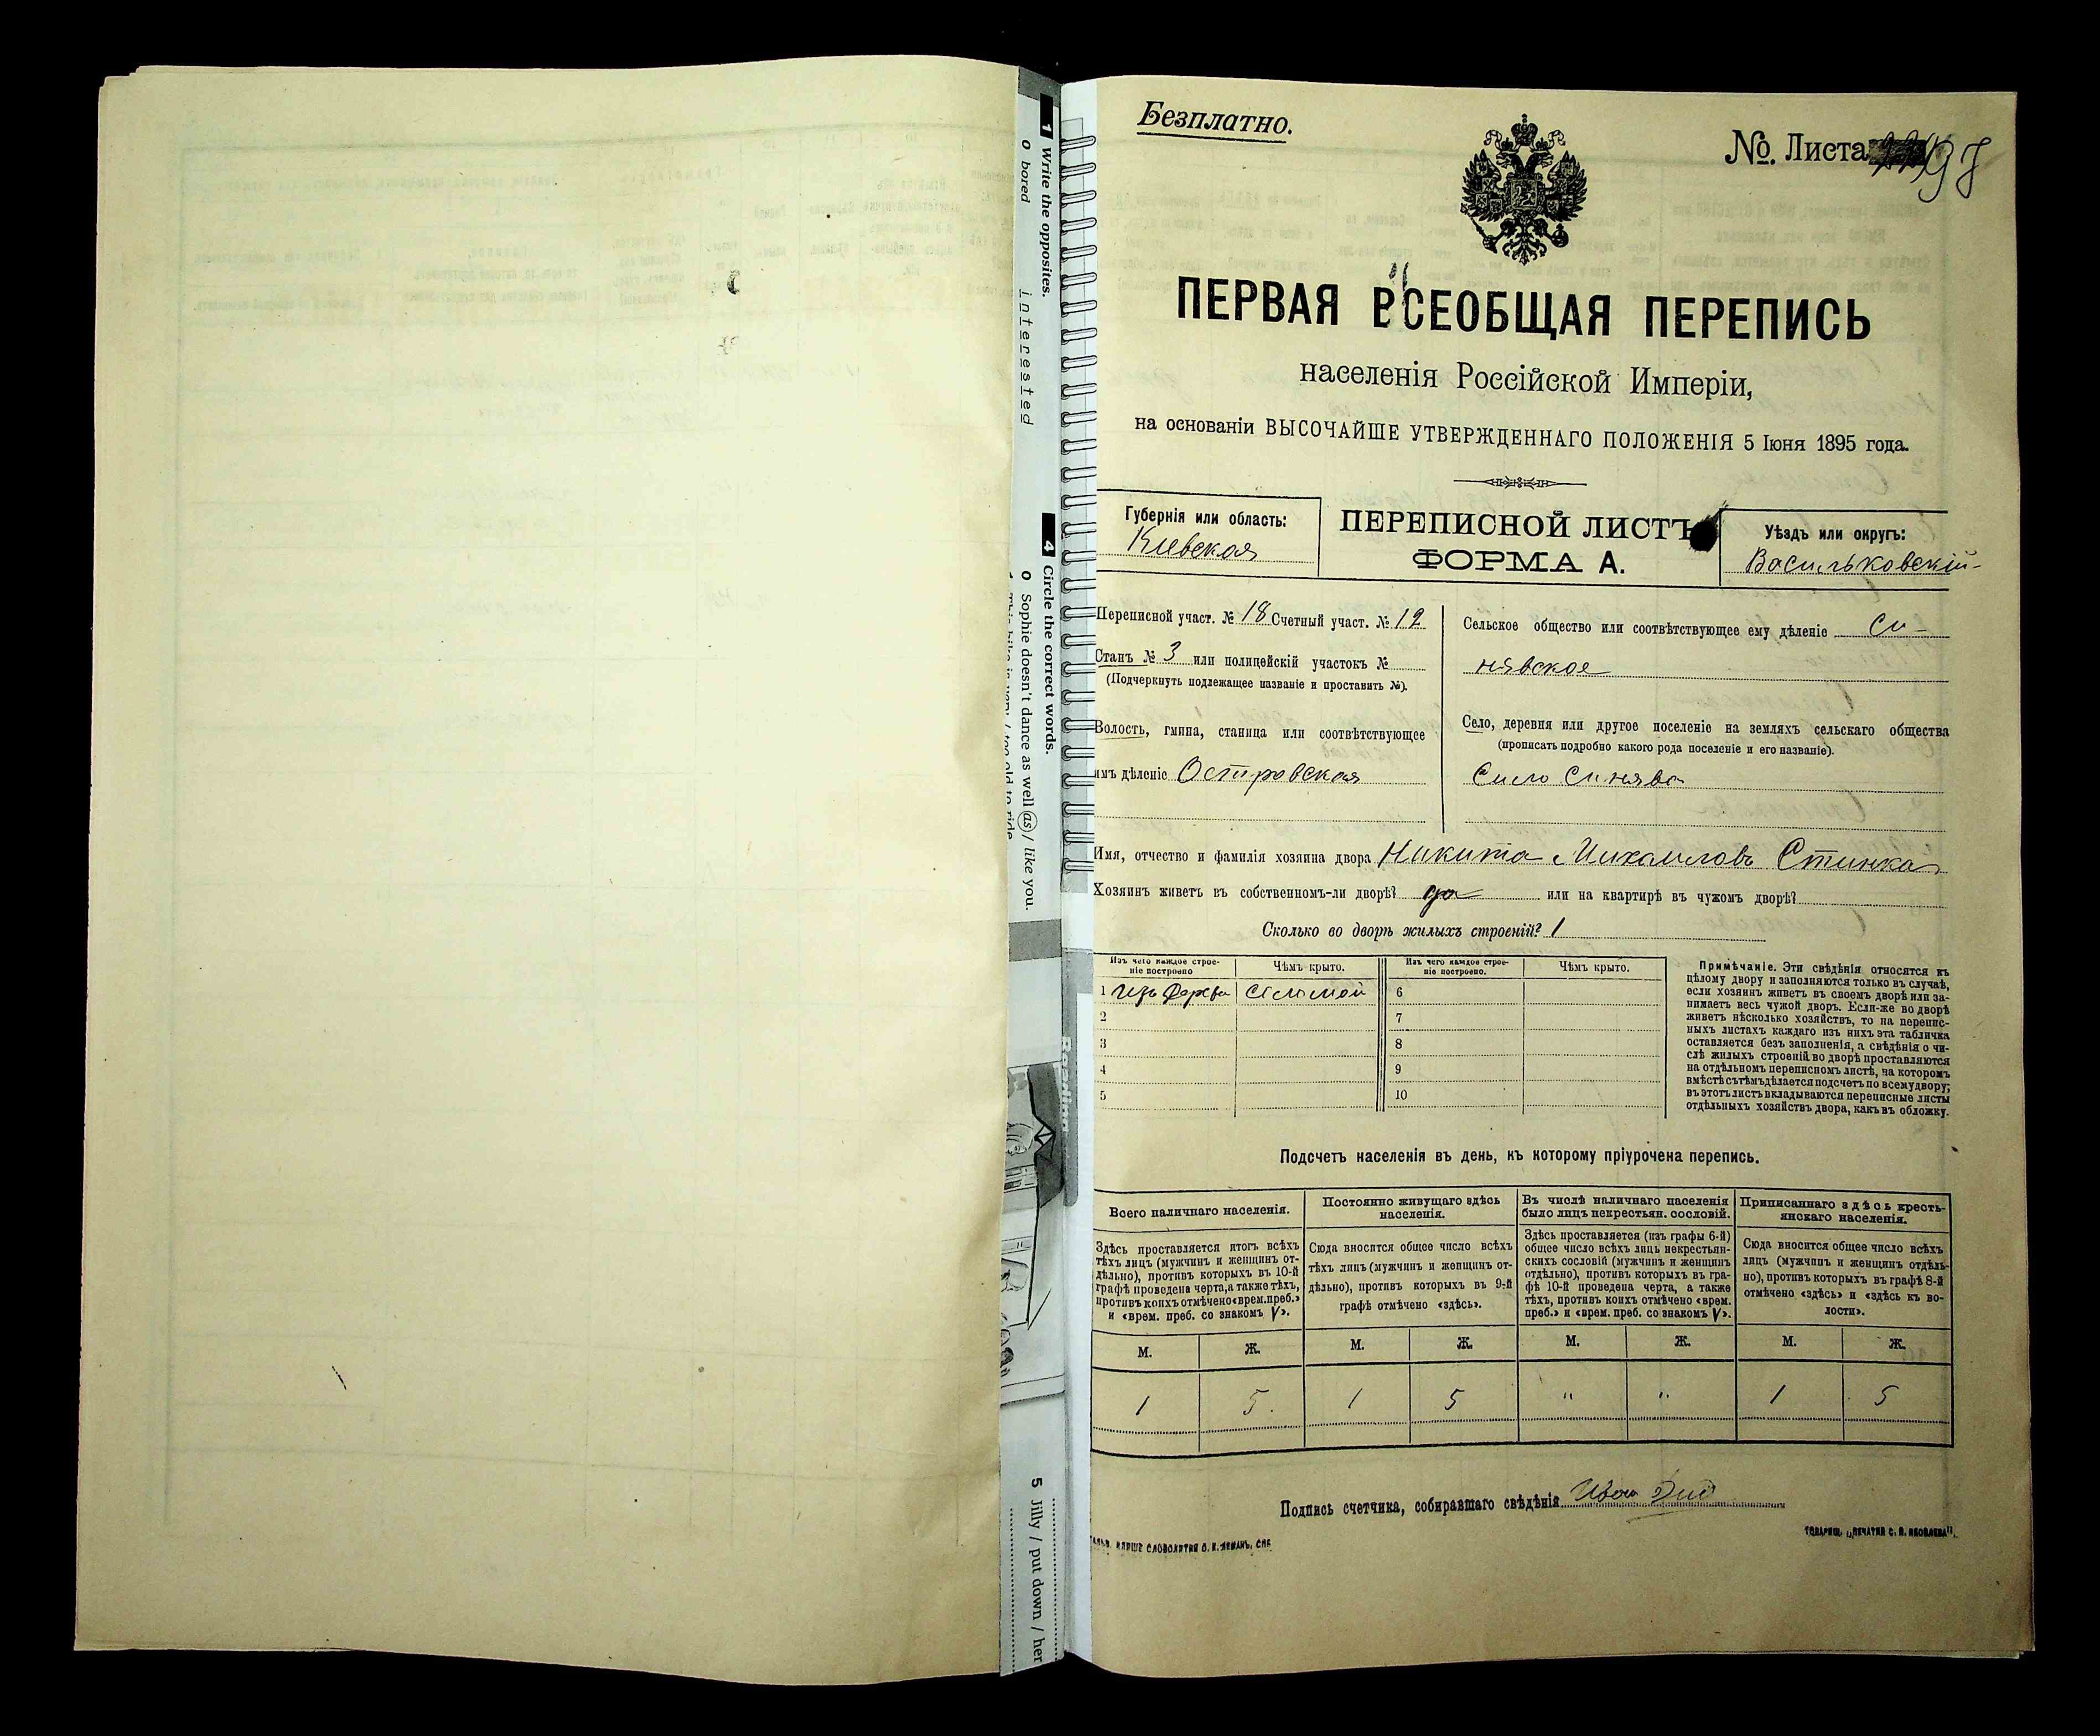 1 Write the opposites.
0 bored interested
4 Circle the correct words.
0 Sophie doesn't dance as well as / like you.
Reading
5 Jilly / put down / her
Безплатно.
№. Листа
ПЕРВАЯ ВСЕОБЩАЯ ПЕРЕПИСЬ
населенія Россійской Имперіи,
на основаніи ВЫСОЧАЙШЕ УТВЕРЖДЕННАГО ПОЛОЖЕНІЯ 5 Іюня 1895 года.
Губернія или область:
Киевская
ПЕРЕПИСНОЙ ЛИСТЪ
ФОРМА А.
Уѣздъ или округъ:
Васильковскій
Переписной участ. № 18 Счетный участ. № 12
Станъ № 3 или полицейскій участокъ №
(Подчеркнуть подлежащее названіе и проставить №).
Волость, гмина, станица или соотвѣтствующее
имъ дѣленіе Островская
Сельское общество или соотвѣтствующее ему дѣленіе Си-
нявское
Село, деревня или другое поселеніе на земляхъ сельскаго общества
(прописать подробно какого рода поселеніе и его названіе).
Село Синява
Имя, отчество и фамилія хозяина двора Никита Михаиловъ Стинка
Хозяинъ живетъ въ собственномъ-ли дворѣ? да или на квартирѣ въ чужомъ дворѣ?
Сколько во дворѣ жилыхъ строеній? 1
Изъ чего каждое строе-
ніе построено
Чѣмъ крыто.
Изъ чего каждое строе-
ніе построено.
Чѣмъ крыто.
1 Изъ дерева соломой 6
2 7
3 8
4 9
5 10
Примѣчаніе. Эти свѣдѣнія относятся къ
цѣлому двору и заполняются только въ случаѣ,
если хозяинъ живетъ въ своемъ дворѣ или за-
нимаетъ весь чужой дворъ. Если-же во дворѣ
живетъ нѣсколько хозяйствъ, то на перепис-
ныхъ листахъ каждаго изъ нихъ эта табличка
оставляется безъ заполненія, а свѣдѣнія о чи-
слѣ жилыхъ строеній во дворѣ проставляются
на отдѣльномъ переписномъ листѣ, на которомъ
вмѣстѣ съ тѣмъ дѣлается подсчетъ по всему двору;
въ этотъ листъ вкладываются переписные листы
отдѣльныхъ хозяйствъ двора, какъ въ обложку.
Подсчетъ населенія въ день, къ которому пріурочена перепись.
Всего наличнаго населенія.
Постоянно живущаго здѣсь
населенія.
Въ числѣ наличнаго населенія
было лицъ некрестьян. сословій.
Приписаннаго здѣсь кресть-
янскаго населенія.
Здѣсь проставляется итогъ всѣхъ
тѣхъ лицъ (мужчинъ и женщинъ от-
дѣльно), противъ которыхъ въ 10-й
графѣ проведена черта, а также тѣхъ,
противъ коихъ отмѣчено «врем. преб.»
и «врем. преб. со знакомъ V».
Сюда вносится общее число всѣхъ
тѣхъ лицъ (мужчинъ и женщинъ от-
дѣльно), противъ которыхъ въ 9-й
графѣ отмѣчено «здѣсь».
Здѣсь проставляется (изъ графы 6-й)
общее число всѣхъ лицъ некрестьян-
скихъ сословій (мужчинъ и женщинъ
отдѣльно), противъ которыхъ въ гра-
фѣ 10-й проведена черта, а также
тѣхъ, противъ коихъ отмѣчено «врем.
преб.» и «врем. преб. со знакомъ V».
Сюда вносится общее число всѣхъ
лицъ (мужчинъ и женщинъ отдѣль-
но), противъ которыхъ въ графѣ 8-й
отмѣчено «здѣсь» и «здѣсь къ во-
лости».
М. Ж. М. Ж. М. Ж. М. Ж.
1 5. 1 5 " " 1 5
Подпись счетчика, собиравшаго свѣдѣнія Иван
СЛОВОЛИТНЯ О. И. ЛЕМАНЪ, СПБ
ТОВАРИЩ. „ПЕЧАТНЯ С. П. ЯКОВЛЕВА".